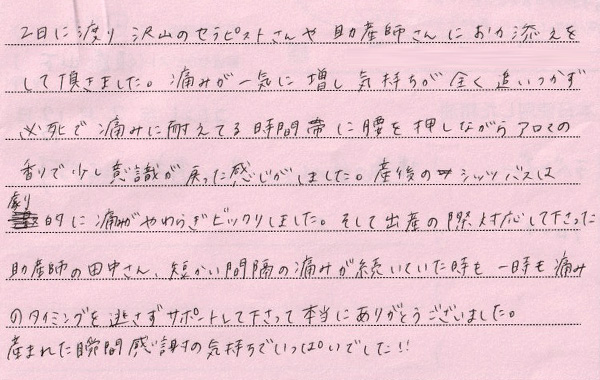 2日に渡り沢山のセラピストさんや助産師さんにお力添えを
して頂きました。痛みが一気に増し気持ちが全く追いつかず
必死で痛みに耐えてる時間帯に腰を押しながらアロマの
香りで少し意識が戻った感じがしました。産後のシッツバスは
劇的に痛みがやわらぎビックリしました。そして出産の際対応して下さった
助産師の田中さん、短かい間隔の痛みが続いていた時も一時も痛み
のタイミングを逃さずサポートして下さって本当にありがとうございました。
産まれた瞬間感謝の気持ちでいっぱいでした!!